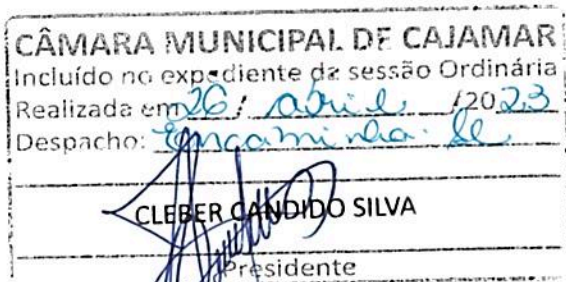 CÂMARA MUNICIPAL DE CAJAMAR
Incluído no expediente da sessão Ordinária
Realizada em 26 / abril /2023
Despacho: Encaminha-se
CLEBER CANDIDO SILVA
Presidente